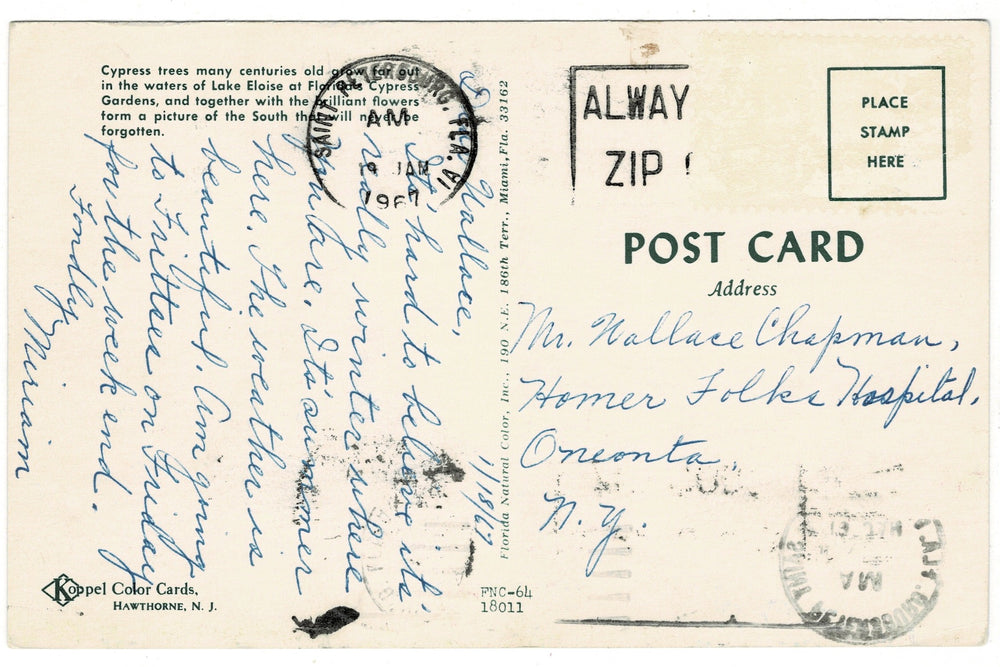 Cypress trees many centuries old grow far out
in the waters of Lake Eloise at Florida's Cypress
Gardens, and together with the brilliant flowers
form a picture of the South that will never be
forgotten.
SAINT PETERSBURG, FLA.
AM
19 JAN
1967
ALWAY
ZIP
PLACE
STAMP
HERE
POST CARD
Address
Mr. Wallace Chapman,
Homer Folks Hospital,
Oneonta,
N.Y.
1/18/67
Dear Wallace,
It's hard to believe it's
really winter where
you are. It's summer
here. The weather is
beautiful. Am going
to Frittses on Friday
for the week end.
Fondly,
Miriam
Florida Natural Color, Inc., 190 N.E. 186th Terr., Miami, Fla. 33162
Koppel Color Cards,
HAWTHORNE, N. J.
FNC-64
18011